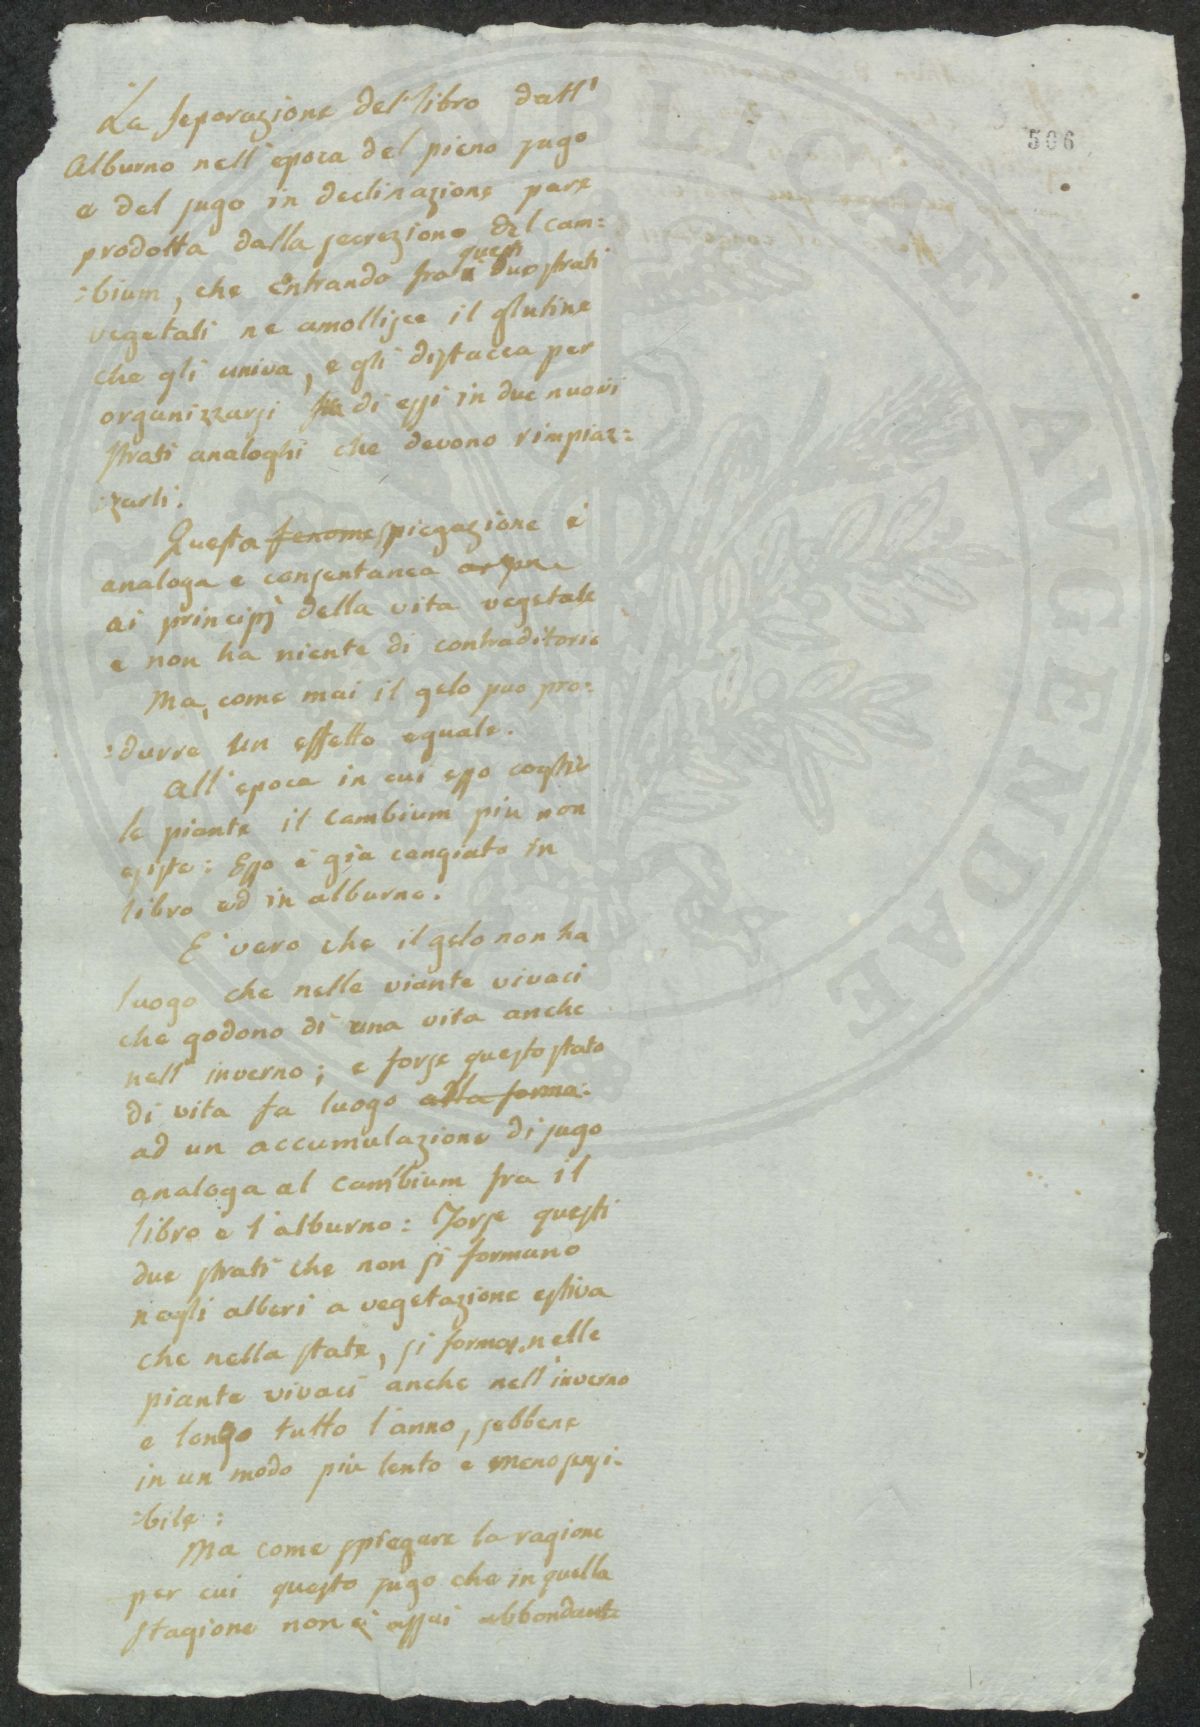 506
La separazione del libro dall'
Alburno nell'epoca del pieno sugo
e del sugo in declinazione pare
prodotta dalla secrezione del cam=
=bium, che entrando fra questi due strati
vegetali ne amollisce il glutine
che gli univa, e gli distacca per
organizzarsi fra di essi in due nuovi
strati analoghi che devono rimpiaz=
=zarli.
Questa fenome spiegazione è
analoga e consentanea
ai principj della vita vegetale
e non ha niente di contraditorio
Ma, come mai il gelo puo pro=
=durre un effetto eguale.
All'epoca in cui esso coglie
le piante il cambium più non
esiste: Esso è già cangiato in
libro ed in alburno.
E' vero che il gelo non ha
luogo che nelle piante vivaci
che godono di una vita anche
nell'inverno; e forse questo stato
di vita fa luogo alla forma=
ad un accumulazione di sugo
analoga al cambium fra il
libro e l'alburno: Forse questi
due strati che non si formano
negli alberi a vegetazione estiva
che nella state, si forman nelle
piante vivaci anche nell'inverno
e lungo tutto l'anno, sebbene
in un modo più lento e meno sensi=
=bile:
Ma come spiegare la ragione
per cui questo sugo che in quella
stagione non è assai abbondante
PUBLICAE
AUGENDAE